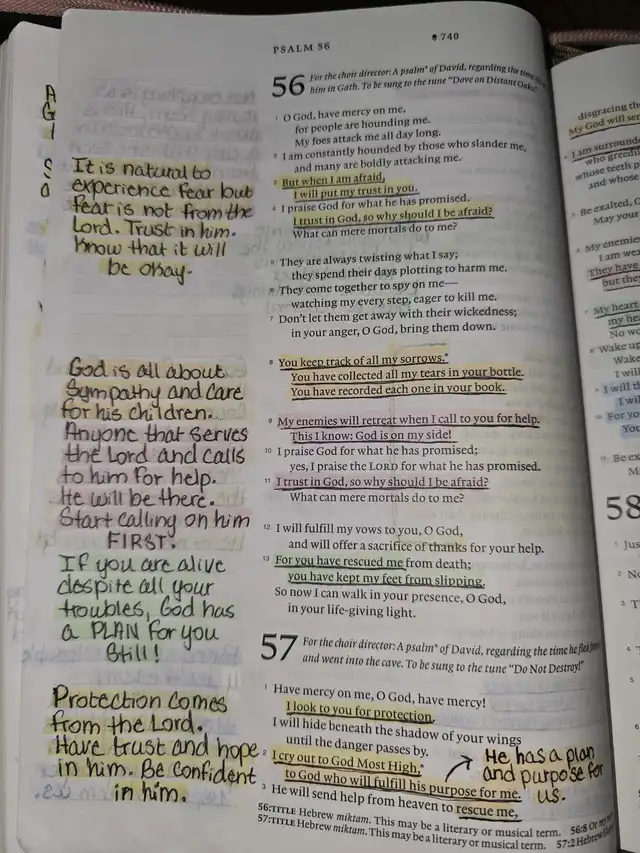 PSALM 56
740
56 For the choir director: A psalm* of David, regarding the time
him in Gath. To be sung to the tune "Dove on Distant Oaks."
1 O God, have mercy on me,
for people are hounding me.
My foes attack me all day long.
2 I am constantly hounded by those who slander me,
and many are boldly attacking me.
3 But when I am afraid,
I will put my trust in you.
4 I praise God for what he has promised.
I trust in God, so why should I be afraid?
What can mere mortals do to me?
5 They are always twisting what I say;
they spend their days plotting to harm me.
6 They come together to spy on me—
watching my every step, eager to kill me.
7 Don't let them get away with their wickedness;
in your anger, O God, bring them down.
8 You keep track of all my sorrows.*
You have collected all my tears in your bottle.
You have recorded each one in your book.
9 My enemies will retreat when I call to you for help.
This I know: God is on my side!
10 I praise God for what he has promised;
yes, I praise the LORD for what he has promised.
11 I trust in God, so why should I be afraid?
What can mere mortals do to me?
12 I will fulfill my vows to you, O God,
and will offer a sacrifice of thanks for your help.
13 For you have rescued me from death;
you have kept my feet from slipping.
So now I can walk in your presence, O God,
in your life-giving light.
57 For the choir director: A psalm* of David, regarding the time he fled from
and went into the cave. To be sung to the tune "Do Not Destroy!"
1 Have mercy on me, O God, have mercy!
I look to you for protection.
I will hide beneath the shadow of your wings
until the danger passes by.
2 I cry out to God Most High,*
to God who will fulfill his purpose for me.
3 He will send help from heaven to rescue me,
56:TITLE Hebrew miktam. This may be a literary or musical term. 56:8 Or my
57:TITLE Hebrew miktam. This may be a literary or musical term. 57:2 Hebrew
It is natural to
experience fear but
fear is not from the
Lord. Trust in him.
Know that it will
be okay.
God is all about
Sympathy and care
for his children.
Anyone that serves
the Lord and calls
to him for help.
He will be there.
Start calling on him
FIRST!
If you are alive
despite all your
troubles, God has
a PLAN for you
Still!
Protection comes
from the Lord.
Have trust and hope
in him. Be confident
in him.
He has a plan
and purpose for
us.
A
G
S
O
disgracing the
My God will sen
4 I am surround
who greedi
whose teeth p
and whose
5 Be exalted, O
May your
6 My enemies
I am wea
They have
but they
7 My heart
my hea
No wo
8 Wake up
Wake up
I will
9 I will th
I wil
10 For yo
You
11 Be ex
M
58
1 Jus
2 No
3 T
4
5
6